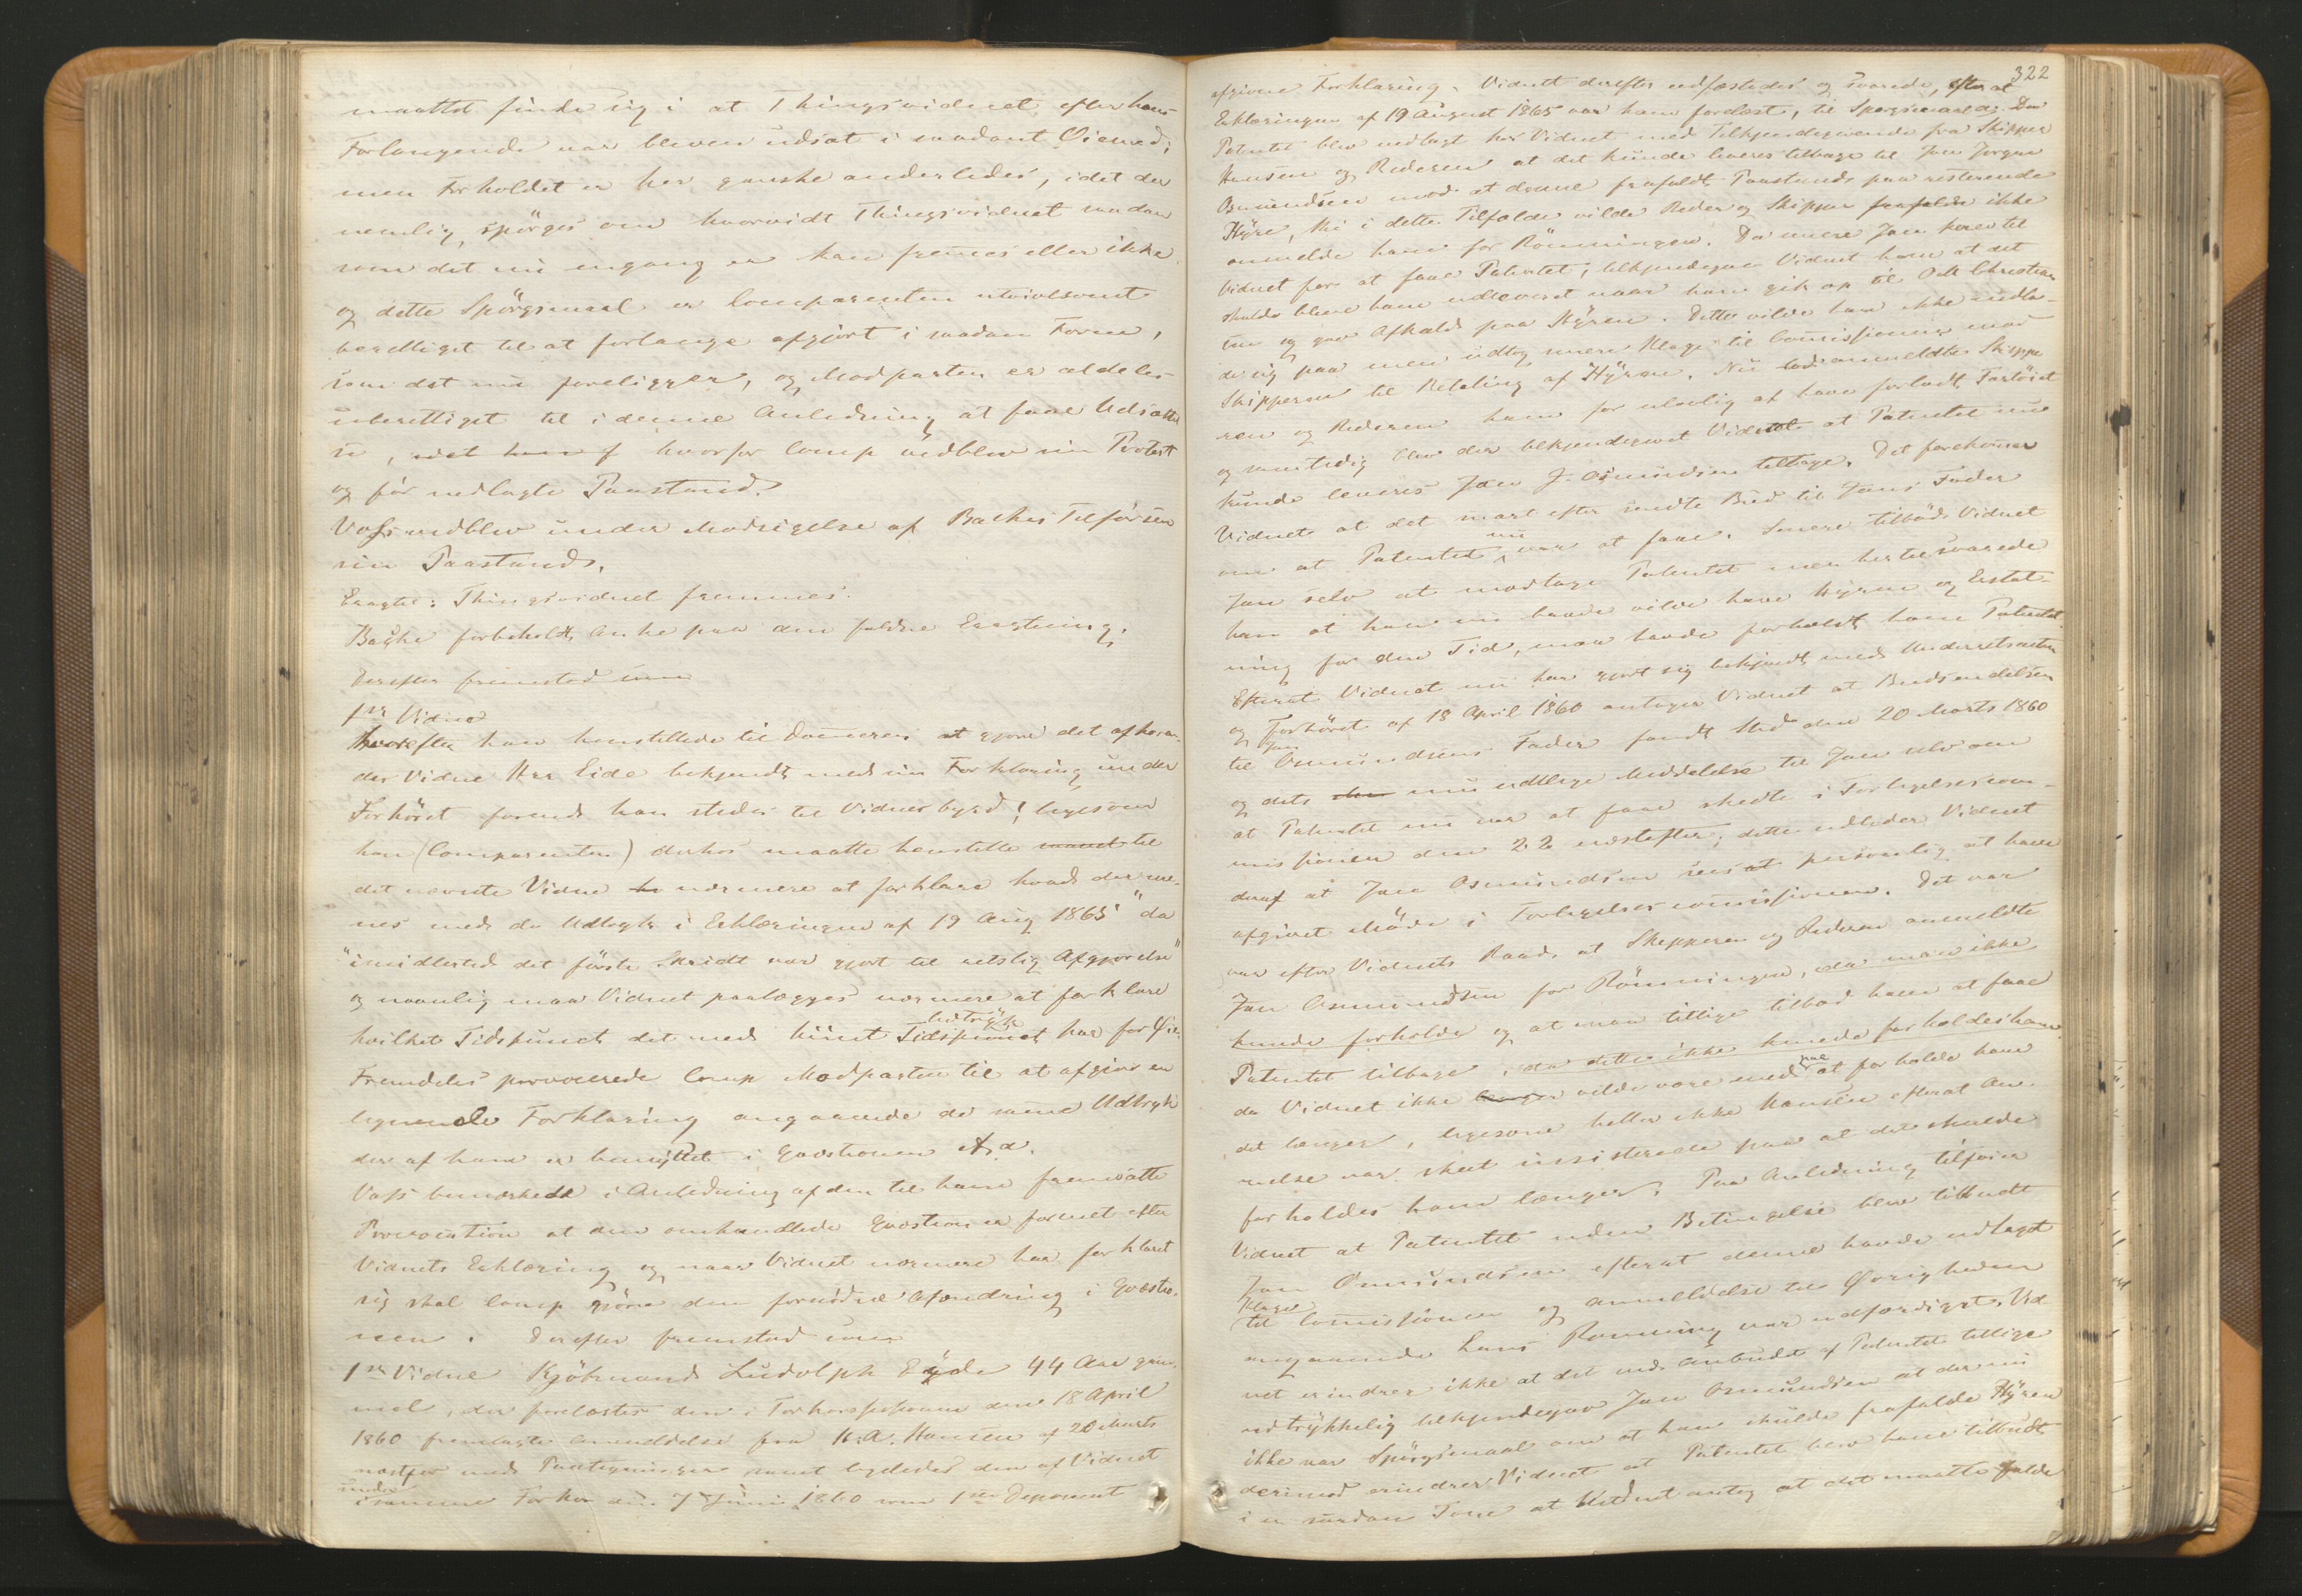 maattet finde sig i at Thingsvidnet efter hans
Forlangende var bleven udsat i saadant Øiemed;
men Forholdet er her ganske anderledes, idet der
nemlig spörges om hvorvidt Thingsvidnet saadan
som det nu engang er kan fremes eller ikke
og dette Spörgsmaal er Comparenten utvivlsomt
berettiget til at forlange afgjört i saadan Form,
som det nu foreligger, og Modparten er aldeles
uberettiget til i denne Anledning at faae Udsættel
se, idet han f hvorfor Comp vedblev sin Protest
og før nedlagte Paastand.
Voss vedblev under Modsigelse af Backes Tilförsen
sin Paastand.
Eragtet: Thingsvidnet fremmes.
Backe forbeholdt Anke paa den faldne Eragtning.
Derefter fremstod som
1ste Vidne
hvorefter han henstillede til Dommeren at gjøre det afhøren-
der Vidne Herr Eide bekjendt med sin Forklaring under
Forhöret forend han stedes til Vidnesbyrd; ligesom
han (Comparenten) derhos maatte henstille til
det nævnte Vidne nærmere at forklare hvad der me-
nes med de Udtryk i Erklæringen af 19 Aug 1865 "da
"imidlertid det förste Skridt var gjort til retslig Afgjørelse"
og navnlig maa Vidnet paalægges nærmere at forklare
hvilket Tidspunct det med hiint Udtryk har for Øie.
Fremdeles provocerede Comp Modparten til at afgive en
lignende Forklaring angaaende de samme Udtryk
der af ham er benyttet i Qvæstionen A, a.
Voss bemærkede i Anledning af den til ham fremsatte
Provocation at den omhandlede Qvæstion er formet efter
Vidnets Erklæring og naar Vidnet nærmere har forklaret
sig skal Comp gjøre den fornödne Afændring i Qvæstio-
nen. Derefter fremstod som
1ste Vidne Kjöbmand Ludolph Eyde 44 Aar gam-
mel, der forelæstes den i Forhørssessionen den 18 April
1860 fremlagte Anmeldelse fra K. A. Hansen af 20 Marts
næstfør med Paategninger samt ligeledes den af Vidnet
under samme Forhør den 7 Juni 1860 som 1ste Deponent
322
afgivne Forklaring. Vidnet derefter edfæstedes og svarede, efter at
Erklæringen af 19 August 1865 var ham forelæst, til Spørgsmaal a: Da
Patentet blev nedlagt hos Vidnet med Tilkjendegivende fra Skipper
Hansen og Rederen at det kunde leveres tilbage til Jan Jorgen
Osmundsen mod at denne frafaldt Paastand paa resterende
Hyre, thi i dette Tilfælde vilde Reder og Skipper frafalde ikke
anmelde ham for Römningen. Da senere Jan kom til
Vidnet for at faae Patentet, tilkjendegav Vidnet ham at det
skulde blive ham udleveret naar han gik op til O Christian
sen og gav Afkald paa Hyren. Dette vilde han ikke indla-
de sig paa men udtog senere Klage til Comissionen mod
Skipperen til Betaling af Hyren. Nu lod anmeldte Skippe
ren og Rederen ham for ulovlig at have forladt Fartöiet
og samtidig blev der tilkjendegivet Vidnet at Patentet nu
kunde leveres Jan J. Osmundsen tilbage. Det forekomer
Vidnet at det snart efter sendte Bud til Jans Fader
om at Patentet nu var at faae. Senere tilböd Vidnet
Jan selv at modtage Patentet men hertil svarede
han at han nu baade vilde have Hyren og Erstat-
ning for den Tid, man havde forholdt ham Patentet.
Efterat Vidnet nu har gjort sig bekjendt med Underretsacten
og Forhöret af 18 April 1860 antager Vidnet at Budsendelsen
til Jan Osmundsens Fader fandt Sted den 20 Marts 1860
og dets mundtlige Meddelelse til Jan selv om
at Patentet nu var at faae skedte i Forligelsescom-
missionen den 22 næstefter; dette udleder Vidnet
deraf at Jan Osmundsen sees at personlig at have
afgivet Möde i Forligelsescomissionen. Det var
var efter Vidnets Raad at Skipperen og Rederen anmeldte
Jan Osmundsen for Römningen, da man ikke
kunde forholde og at man tillige tilbød ham at faae
Patentet tilbage, da dette ikke kunde forholdes ham
da Vidnet ikke længer vilde være med paa at forholde ham
det længer, ligesom heller ikke Hansen efterat An-
melse var skeet insisterede paa at det skulde
forholdes ham længer. Paa Anledning tilføier
Vidnet at Patentet uden Betingelse blev tilbudt
Jan Osmundsen efterat denne havde udtaget
Klage til Comissionen og Anmeldelse til Øvrigheden
angaaende hans Rømning var udfærdiget. Vid
net erindrer ikke at det ved Anbudet af Patentet tillige
udtrykkelig tilkjendegav Jan Osmundsen at der nu
ikke var Spörgsmaal om at han skulde frafalde Hyren
derimod erindrer Vidnet at Patentet blev ham tilbudt
i en saadan Tone at Vidnet antog at det maatte falde